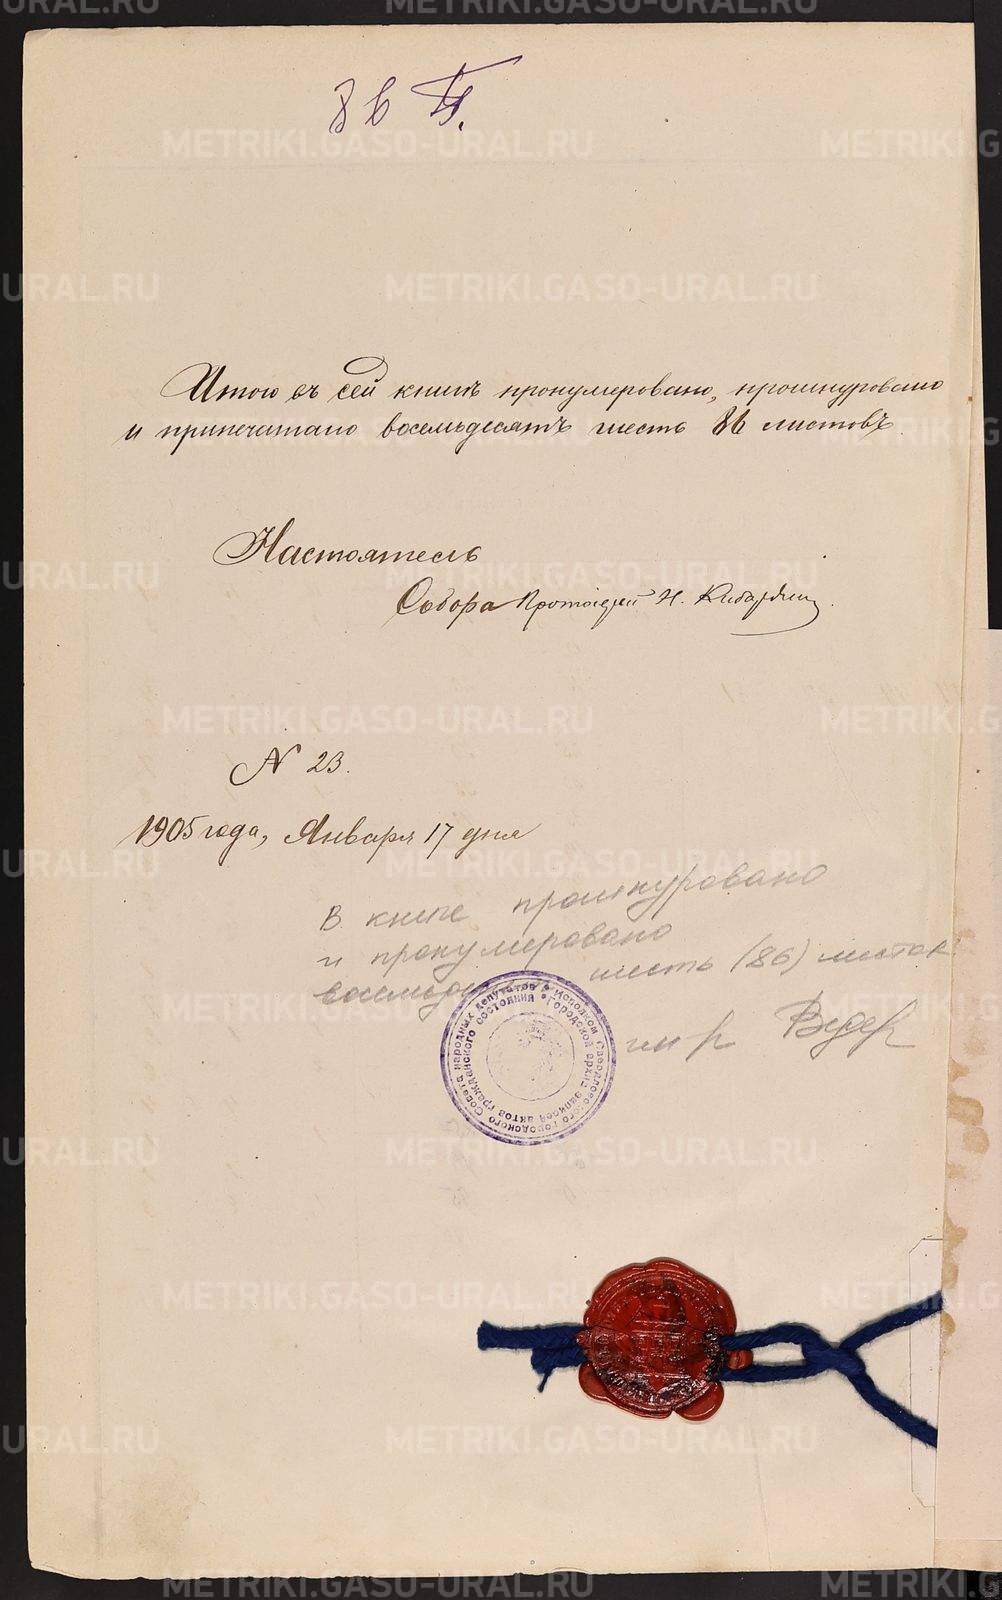 86
Итого въ сей книгѣ пронумеровано, прошнуровано
и припечатано восемьдесятъ шесть 86 листовъ.
Настоятель
Собора Протоіерей Н. Кибардин
N 23.
1905 года, Января 17 дня
В книге прошнуровано
и пронумеровано
восемьдесят шесть (86) листов
Исполком Свердловского городского Совета народных депутатов
Городской архив записей актов гражданского состояния
METRIKI.GASO-URAL.RU